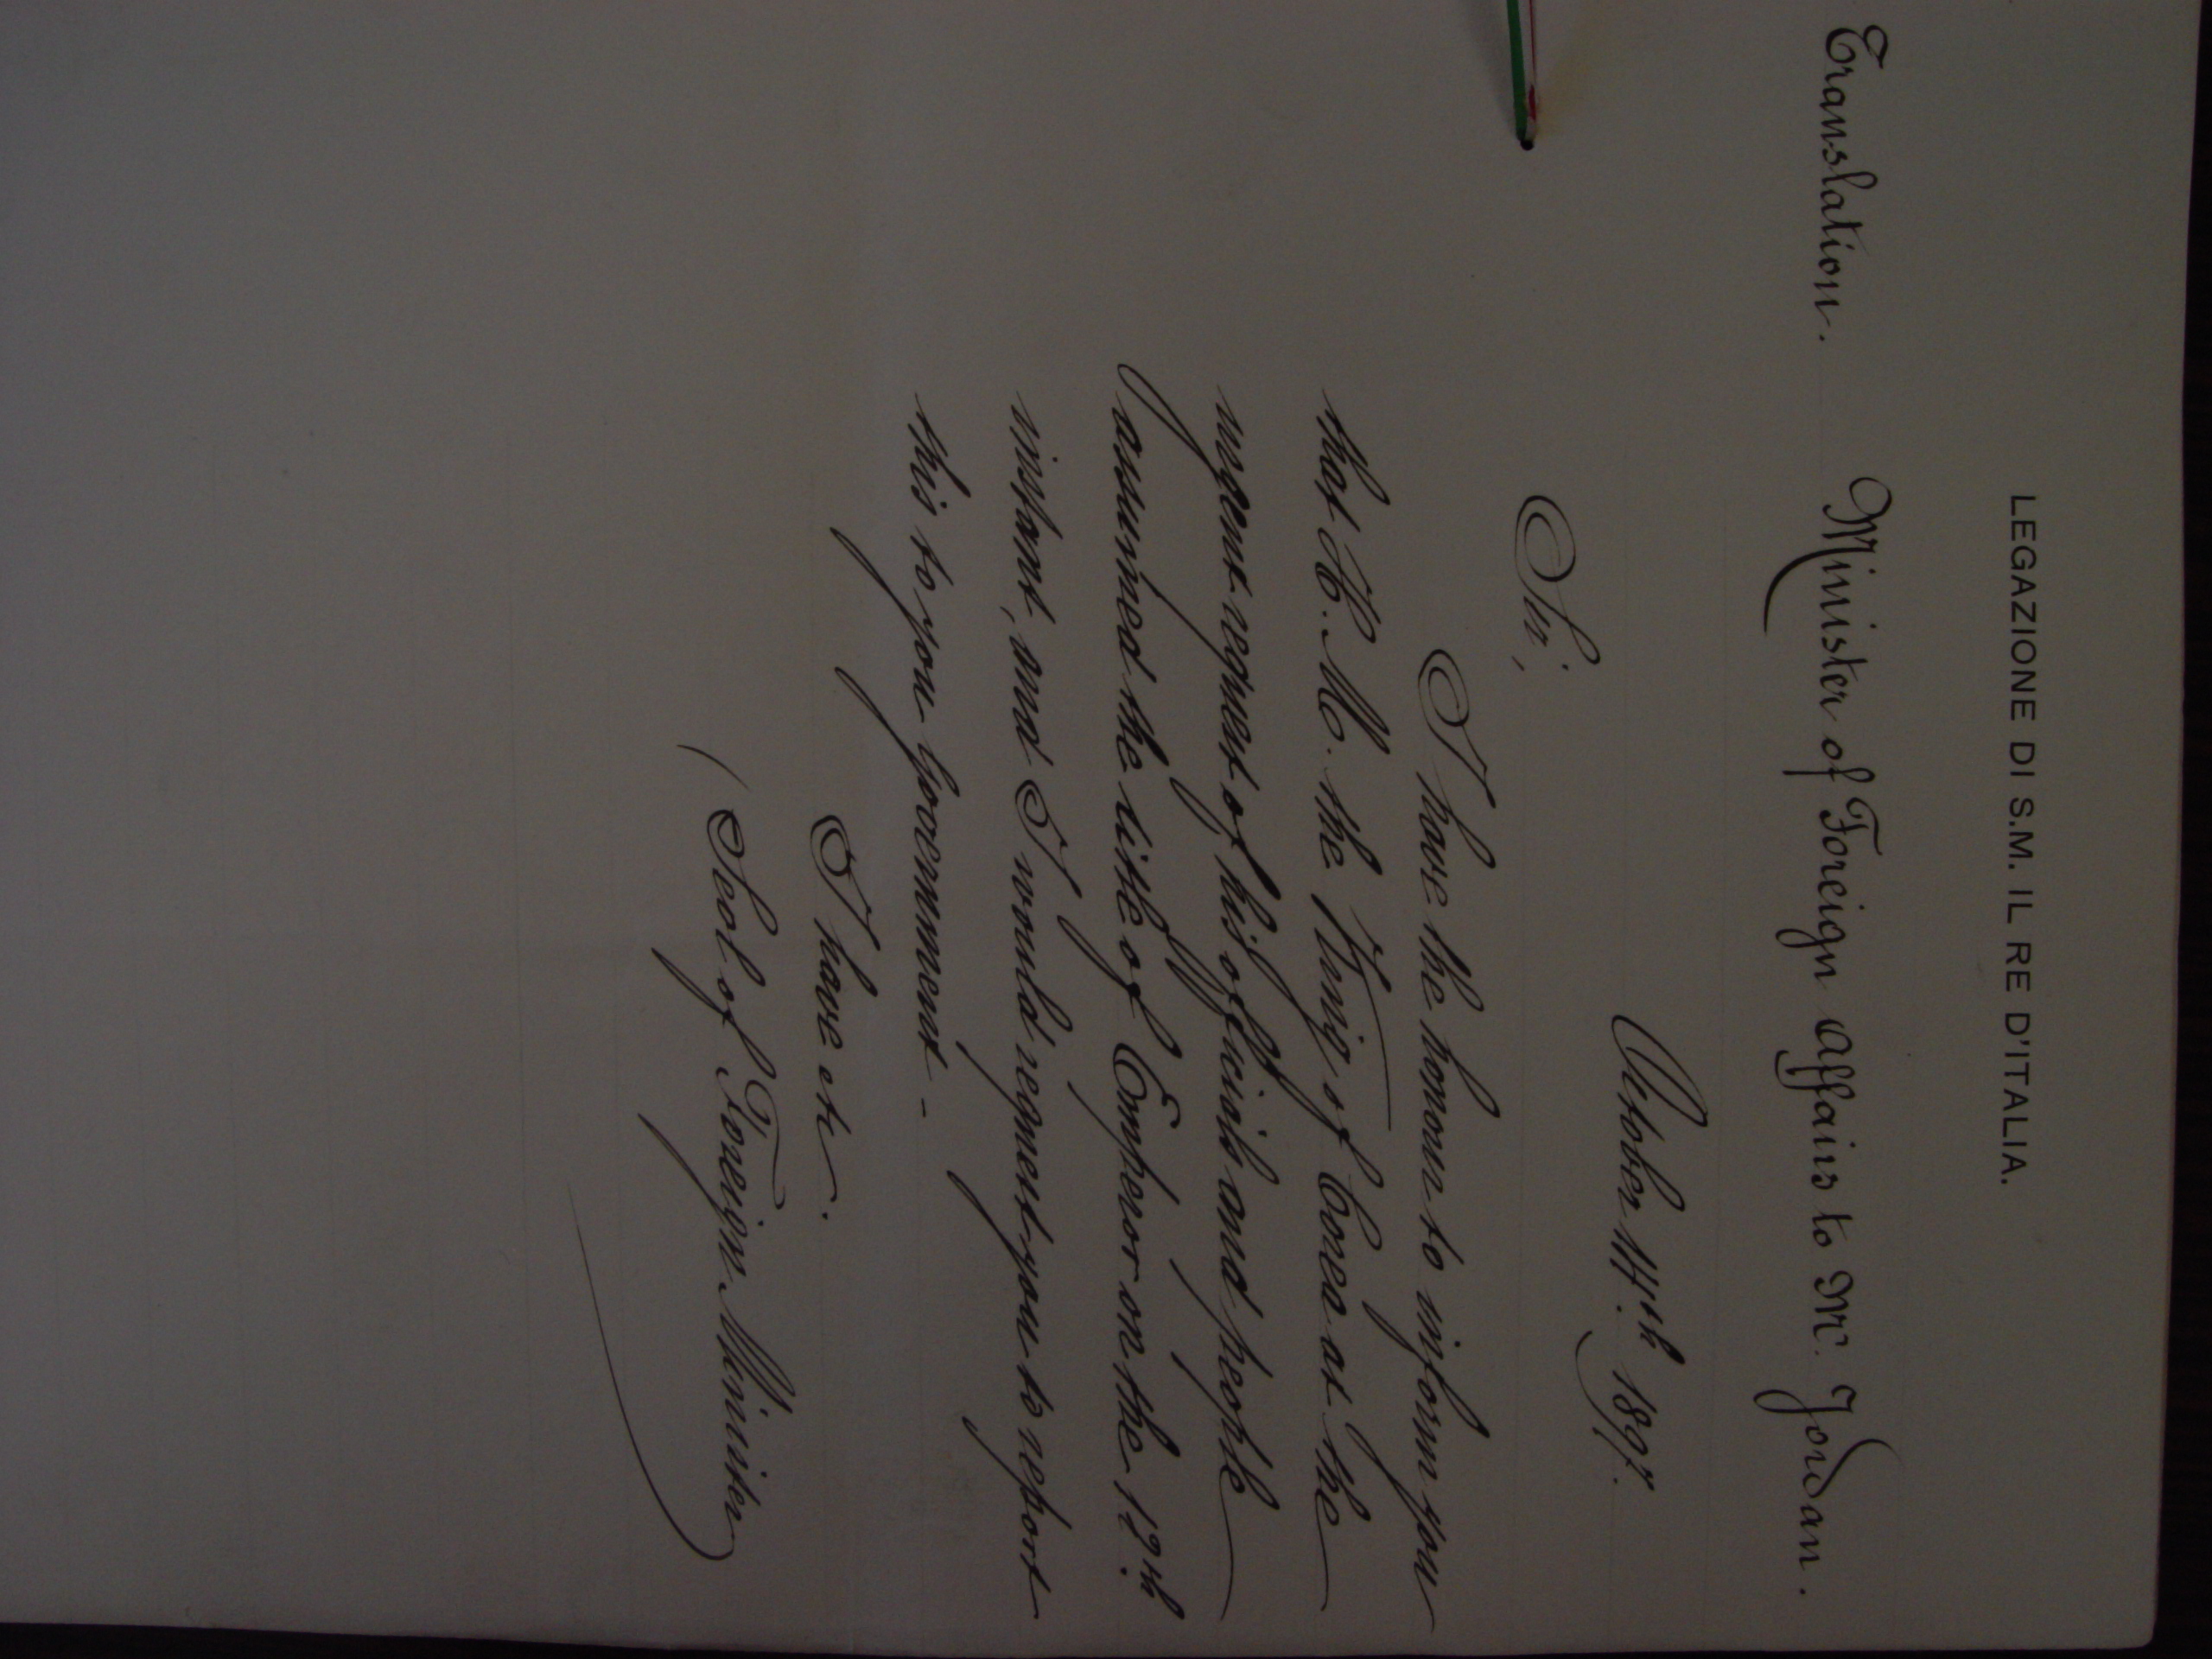 LEGAZIONE DI S.M. IL RE D'ITALIA.
Translation. Minister of Foreign Affairs to Mr. Jordan.
October 14th. 1897.
Sir,
I have the honour to inform you
that H. M. the King of Corea at the
urgent request of his officials and people
assumed the title of Emperor on the 12th.
instant, and I would request you to report
this to your Government -
I have etc.
(Seal of Foreign Minister)